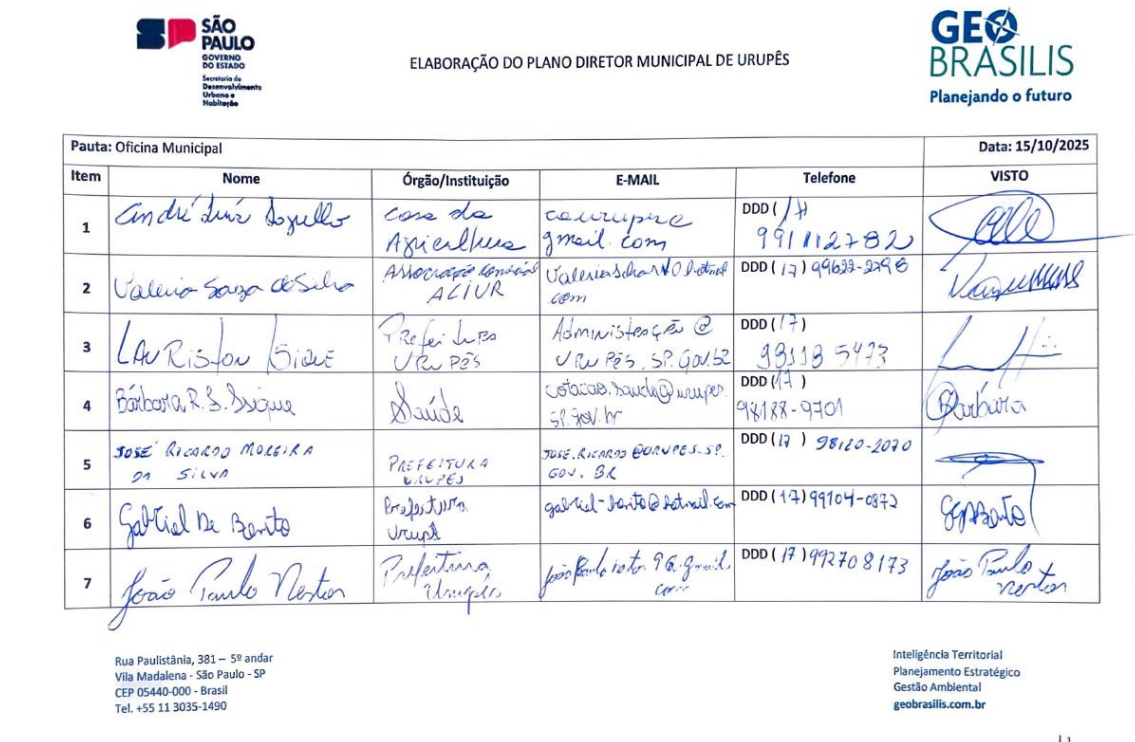 SÃO PAULO
GOVERNO DO ESTADO
Secretaria de
Desenvolvimento
Urbano e
Habitação
ELABORAÇÃO DO PLANO DIRETOR MUNICIPAL DE URUPÊS
GEO
BRASILIS
Planejando o futuro
Pauta: Oficina Municipal Data: 15/10/2025
Item Nome Órgão/Instituição E-MAIL Telefone VISTO
1 André Luiz casa da Agricultura gmail.com DDD (17) 991112782
2 Valeria Souza de Silva Associação Comercial ACIUR com DDD (17) 99622-2798
3 LAURISTON Prefeitura URUPÊS Administração@URUPÊS.SP.GOV.BR DDD (17) 98118 5473
4 Bárbara R. S. Saúde cotacao.saude@urupes.sp.gov.br DDD (17) 98188-9701 Bárbara
5 JOSÉ RICARDO MOREIRA DA SILVA PREFEITURA URUPÊS JOSE.RICARDO@URUPES.SP.GOV.BR DDD (17) 98120-2070
6 Gabriel De Bento Prefeitura Urupês gabriel-bento@hotmail.com DDD (17) 99104-0872
7 João Paulo Nestor Prefeitura Urupês gmail.com DDD (17) 992708173 João Paulo Nestor
Rua Paulistânia, 381 – 5º andar
Vila Madalena - São Paulo - SP
CEP 05440-000 - Brasil
Tel. +55 11 3035-1490
Inteligência Territorial
Planejamento Estratégico
Gestão Ambiental
geobrasilis.com.br